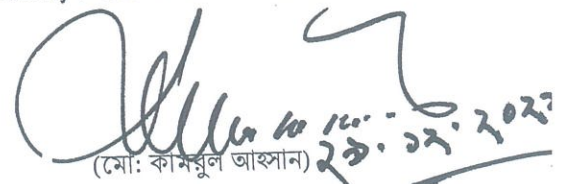 (মো: কামরুল আহসান) ২৯.১২.২০২২